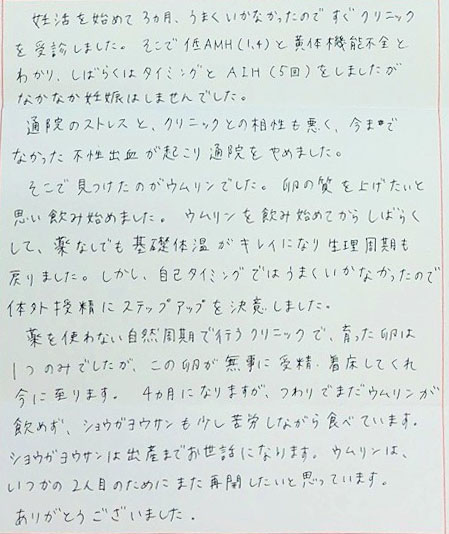 妊活を始めて3ヵ月、うまくいかなかったのですぐクリニック
を受診しました。そこで低AMH(1.4)と黄体機能不全と
わかり、しばらくはタイミングとAIH(5回)をしましたが
なかなか妊娠はしませんでした。
通院のストレスと、クリニックとの相性も悪く、今まで
なかった不性出血が起こり通院をやめました。
そこで見つけたのがウムリンでした。卵の質を上げたいと
思い飲み始めました。ウムリンを飲み始めてからしばらく
して、薬なしでも基礎体温がキレイになり生理周期も
戻りました。しかし、自己タイミングではうまくいかなかったので
体外授精にステップアップを決意しました。
薬を使わない自然周期で行うクリニックで、育った卵は
1つのみでしたが、この卵が無事に受精・着床してくれ
今に至ります。4ヵ月になりますが、つわりでまだウムリンが
飲めず、ショウガヨウサンも少し苦労しながら食べています。
ショウガヨウサンは出産までお世話になります。ウムリンは、
いつかの2人目のためにまた再開したいと思っています。
ありがとうございました.